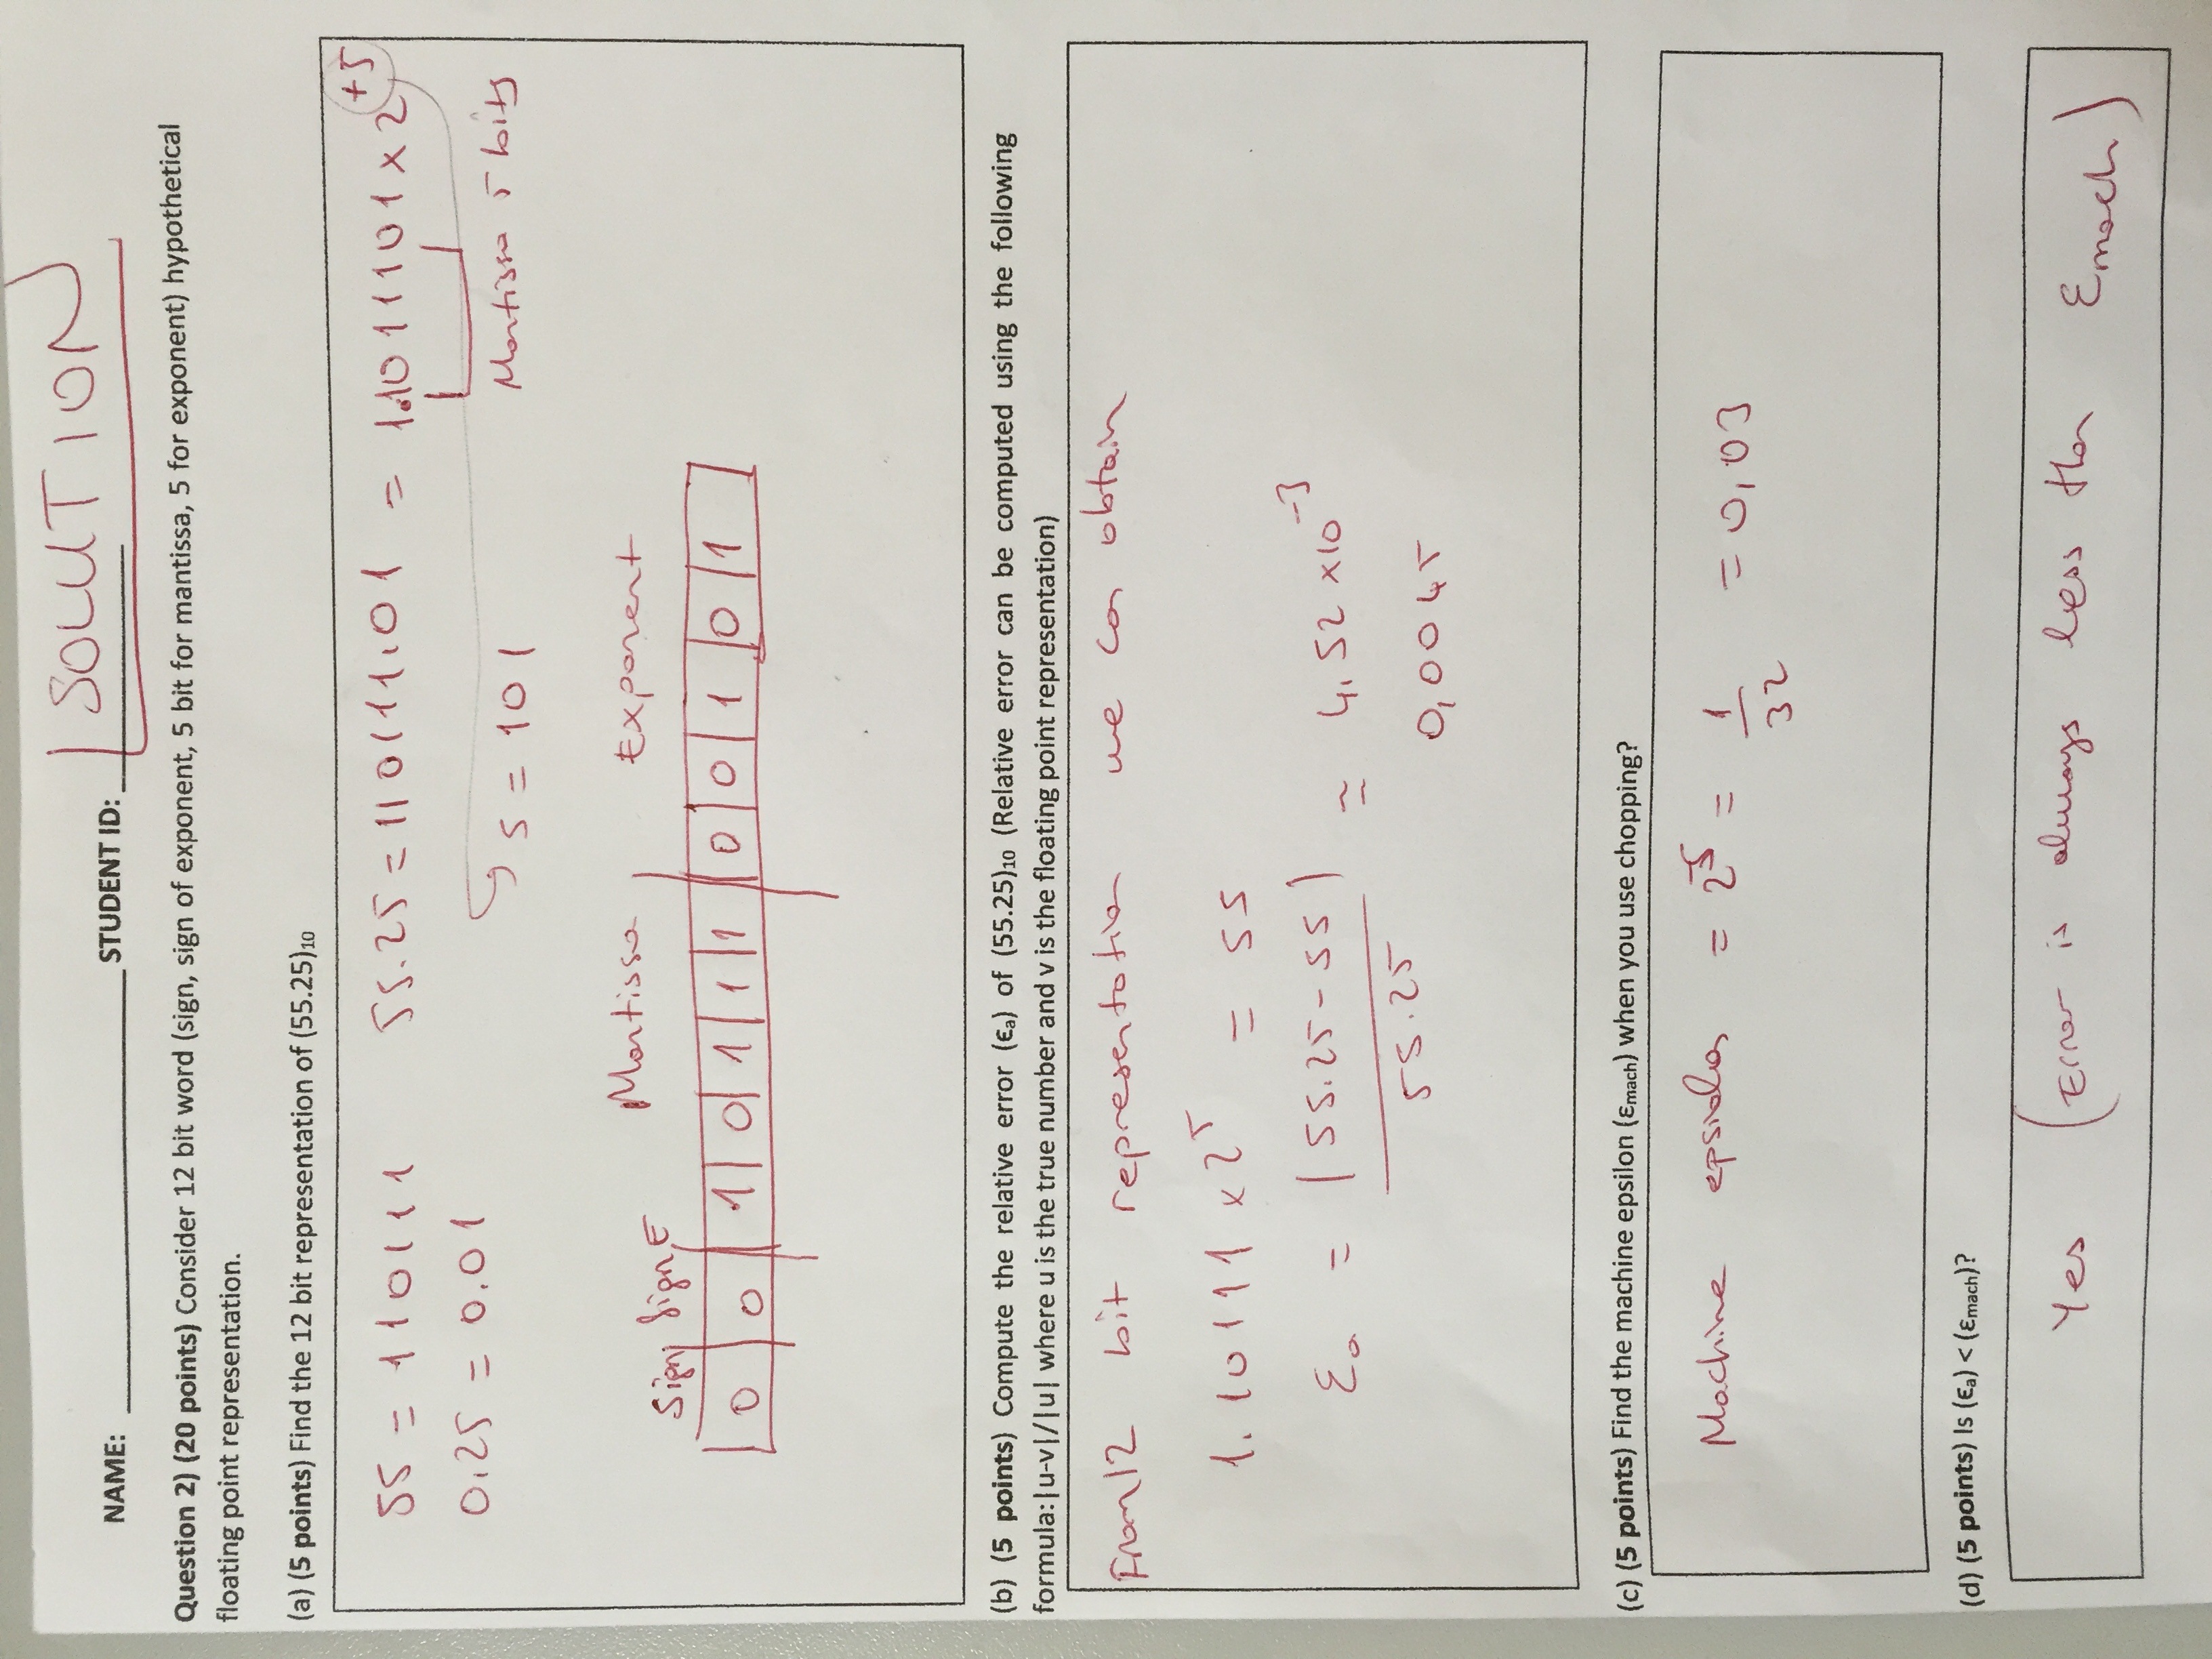 SOLUTION
NAME: ____________ STUDENT ID: ____________
Question 2) (20 points) Consider 12 bit word (sign, sign of exponent, 5 bit for mantissa, 5 for exponent) hypothetical
floating point representation.
(a) (5 points) Find the 12 bit representation of (55.25)₁₀
55 = 110111 55.25 = 110111.01 = 1.1011101 x 2⁺⁵
0.25 = 0.01
5 = 101 Mantissa 5 bits
Sign Sign E Mantissa Exponent
0 0 1 0 1 1 1 0 0 1 0 1
(b) (5 points) Compute the relative error (ϵₐ) of (55.25)₁₀ (Relative error can be computed using the following
formula:|u-v|/|u| where u is the true number and v is the floating point representation)
From 12 bit representation we can obtain
1.10111 x 2⁵ = 55
Ea = |55.25 - 55| / 55.25 ≅ 4.52 x10⁻³
0,0045
(c) (5 points) Find the machine epsilon (ε_mach) when you use chopping?
Machine epsiolon = 2⁻⁵ = 1/32 = 0,03
(d) (5 points) Is (ϵₐ) < (ε_mach)?
Yes (Error is always less than Emach)